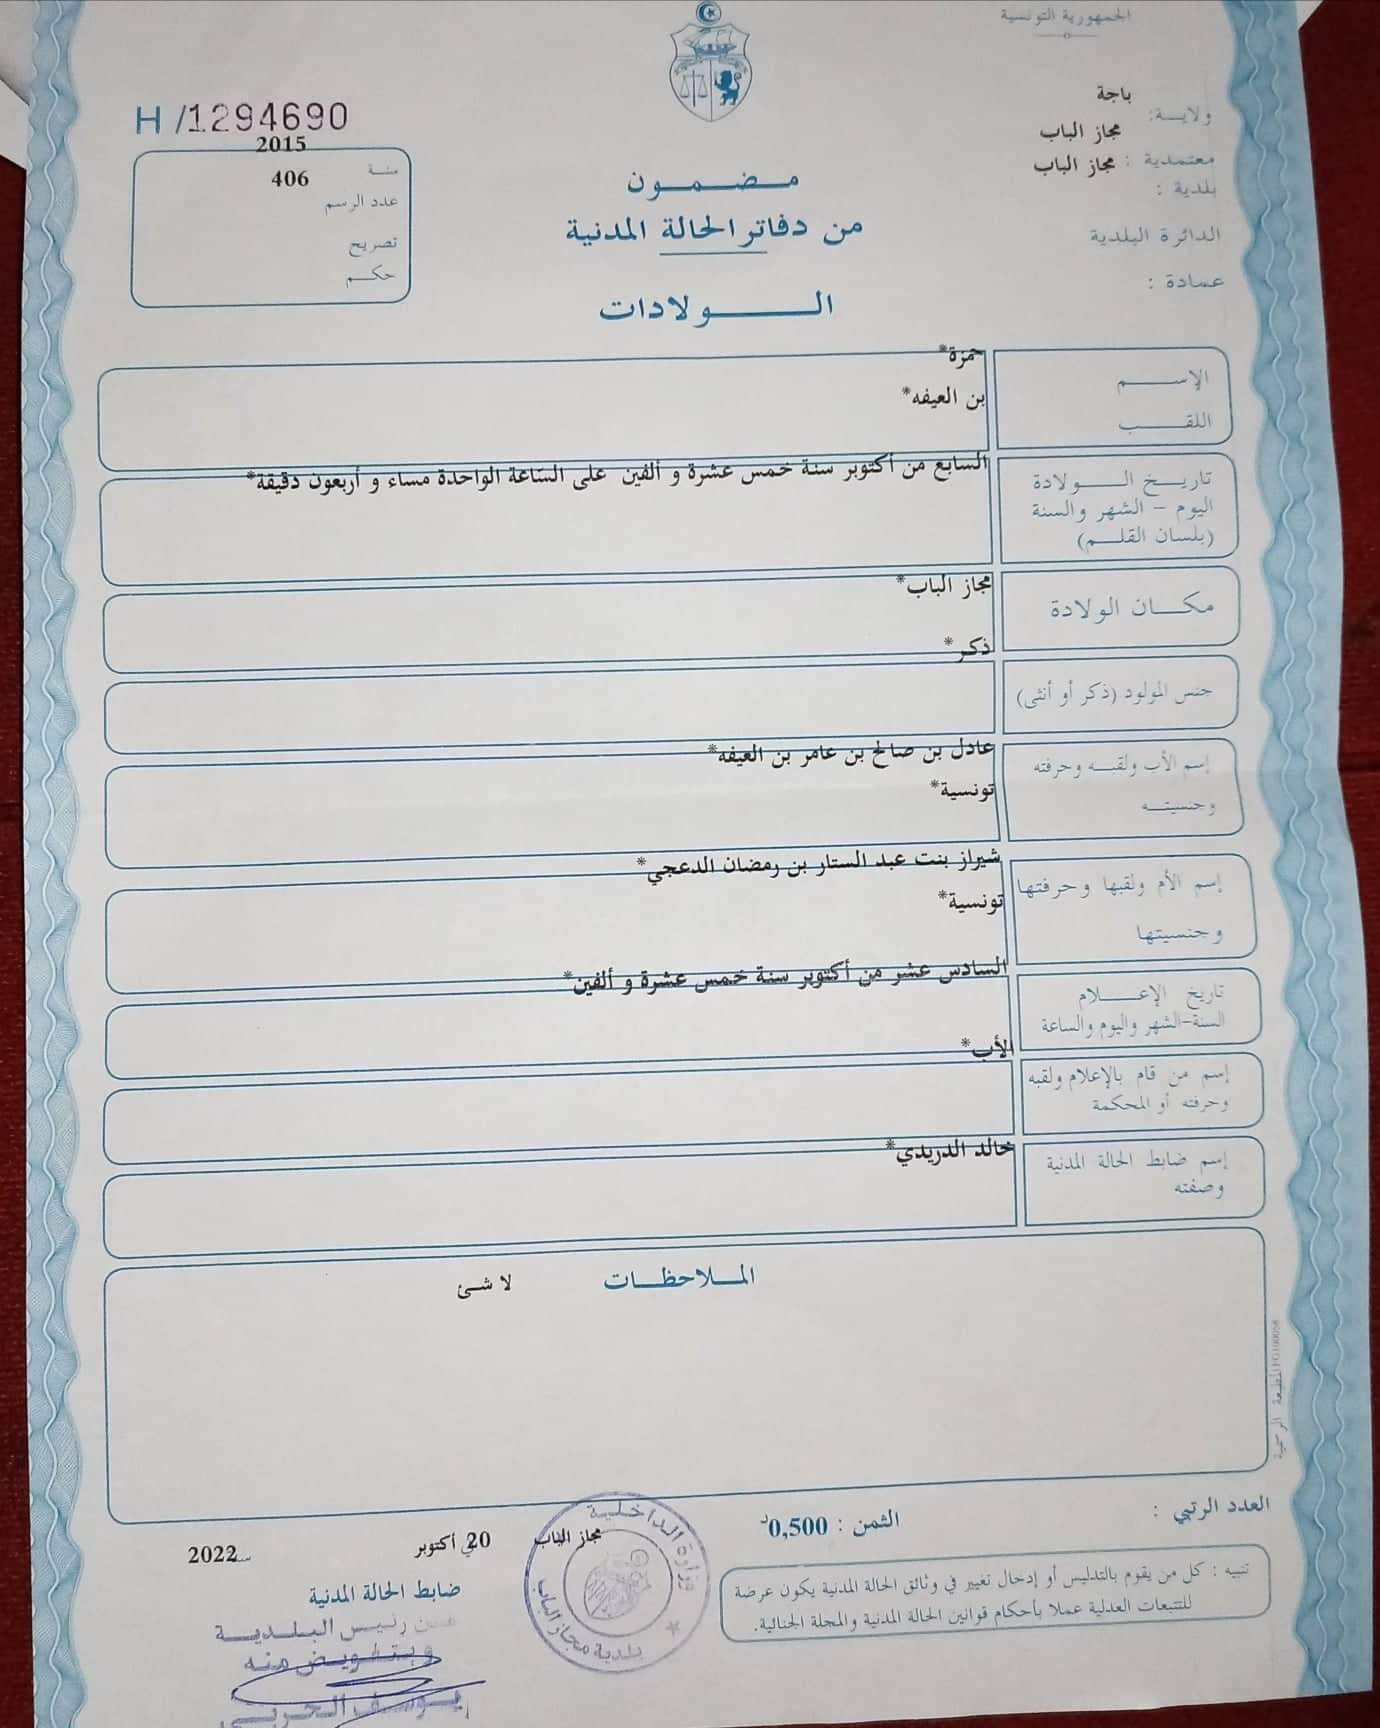 الجمهورية التونسية
ولاية: باجة
معتمدية : مجاز الباب
بلدية : مجاز الباب
الدائرة البلدية
عمادة :
H /1294690
سنة 2015
عدد الرسم 406
تصريح
حكم
مضمون
من دفاتر الحالة المدنية
الولادات
الإسم حمزة*
اللقب بن العيفه*
تاريخ الولادة
اليوم - الشهر والسنة
(بلسان القلم)
السابع من أكتوبر سنة خمس عشرة و ألفين على الساعة الواحدة مساء و أربعون دقيقة*
مكان الولادة مجاز الباب*
جنس المولود (ذكر أو أنثى) ذكر*
إسم الأب ولقبه وحرفته
وجنسيته
عادل بن صالح بن عامر بن العيفه*
تونسية*
إسم الأم ولقبها وحرفتها
وجنسيتها
شيراز بنت عبد الستار بن رمضان الدعجي*
تونسية*
تاريخ الإعلام
السنة-الشهر واليوم والساعة
السادس عشر من أكتوبر سنة خمس عشرة و ألفين*
إسم من قام بالإعلام ولقبه
وحرفته أو المحكمة
الأب*
إسم ضابط الحالة المدنية
وصفته
خالد الدريدي*
الملاحظات
لا شئ
المطبعة الرسمية
العدد الرتبي :
الثمن : 0,500د
تنبيه : كل من يقوم بالتدليس أو إدخال تغيير في وثائق الحالة المدنية يكون عرضة
للتتبعات العدلية عملا بأحكام قوانين الحالة المدنية والمجلة الجنائية.
وزارة الداخلية
بلدية مجاز الباب
مجاز الباب في 20 أكتوبر سنة 2022
ضابط الحالة المدنية
عن رئيس البلدية
وبتفويض منه
يوسف الحربي